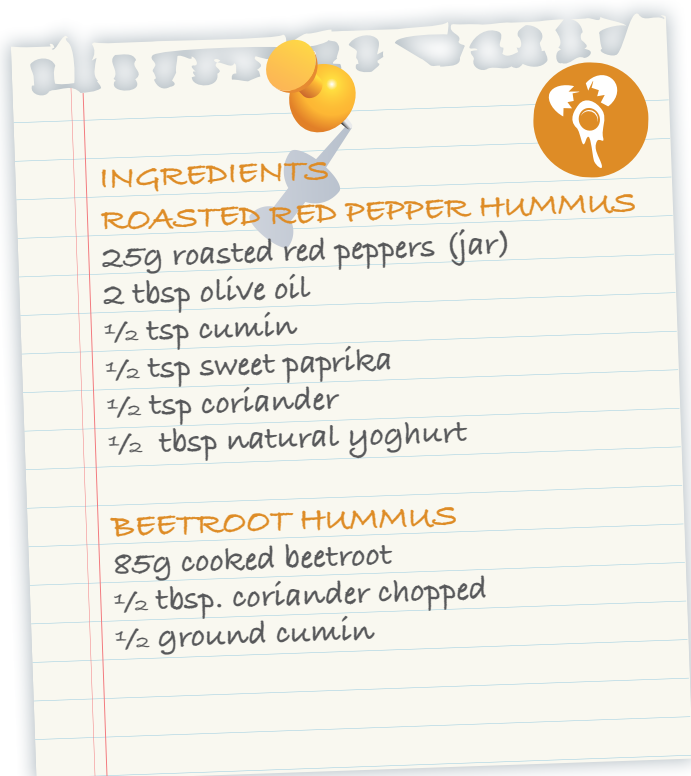 INGREDIENTS
ROASTED RED PEPPER HUMMUS
25g roasted red peppers (jar)
2 tbsp olive oil
½ tsp cumin
½ tsp sweet paprika
½ tsp coriander
½ tbsp natural yoghurt
BEETROOT HUMMUS
85g cooked beetroot
½ tbsp. coriander chopped
½ ground cumin